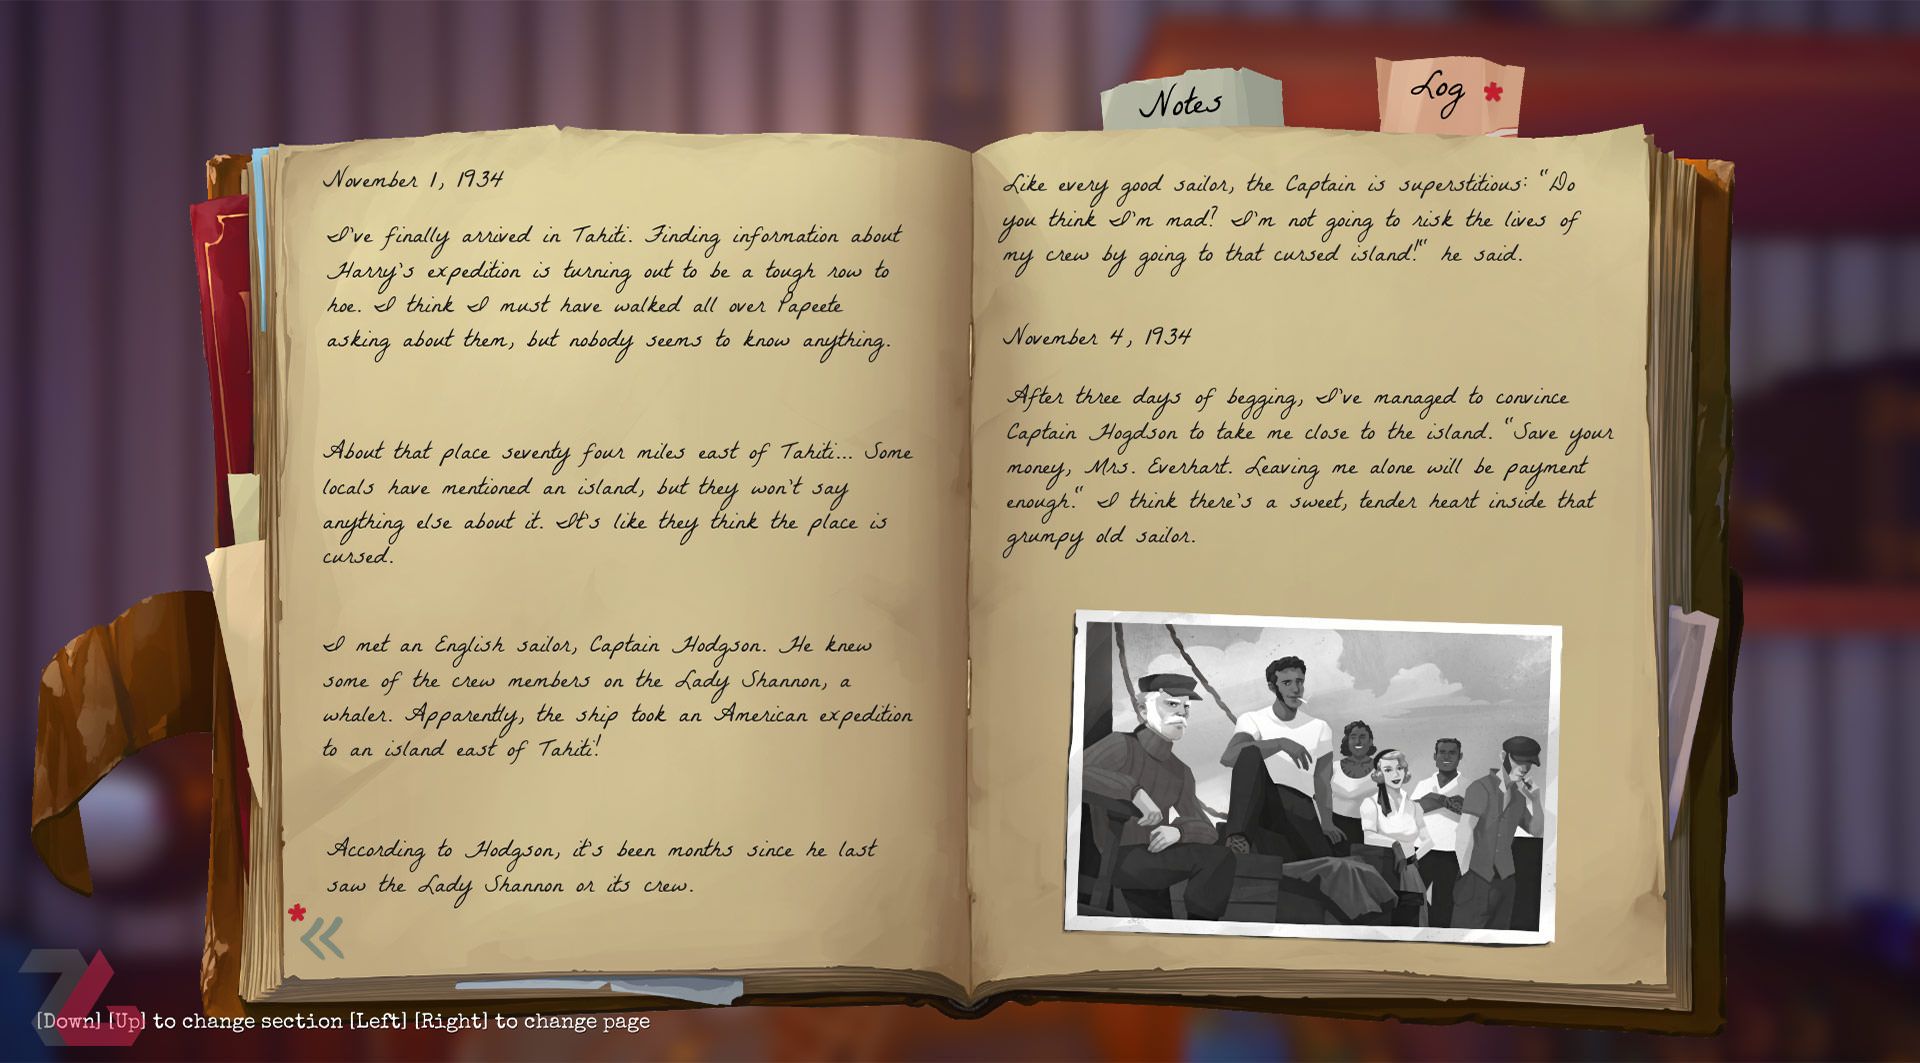 Notes
Log *
November 1, 1934
I've finally arrived in Tahiti. Finding information about
Harry's expedition is turning out to be a tough row to
hoe. I think I must have walked all over Papeete
asking about them, but nobody seems to know anything.
About that place seventy four miles east of Tahiti... Some
locals have mentioned an island, but they won't say
anything else about it. It's like they think the place is
cursed.
I met an English sailor, Captain Hodgson. He knew
some of the crew members on the Lady Shannon, a
whaler. Apparently, the ship took an American expedition
to an island east of Tahiti!
According to Hodgson, it's been months since he last
saw the Lady Shannon or its crew.
Like every good sailor, the Captain is superstitious: "Do
you think I'm mad? I'm not going to risk the lives of
my crew by going to that cursed island!" he said.
November 4, 1934
After three days of begging, I've managed to convince
Captain Hogdson to take me close to the island. "Save your
money, Mrs. Everhart. Leaving me alone will be payment
enough." I think there's a sweet, tender heart inside that
grumpy old sailor.
[Down] [Up] to change section [Left] [Right] to change page